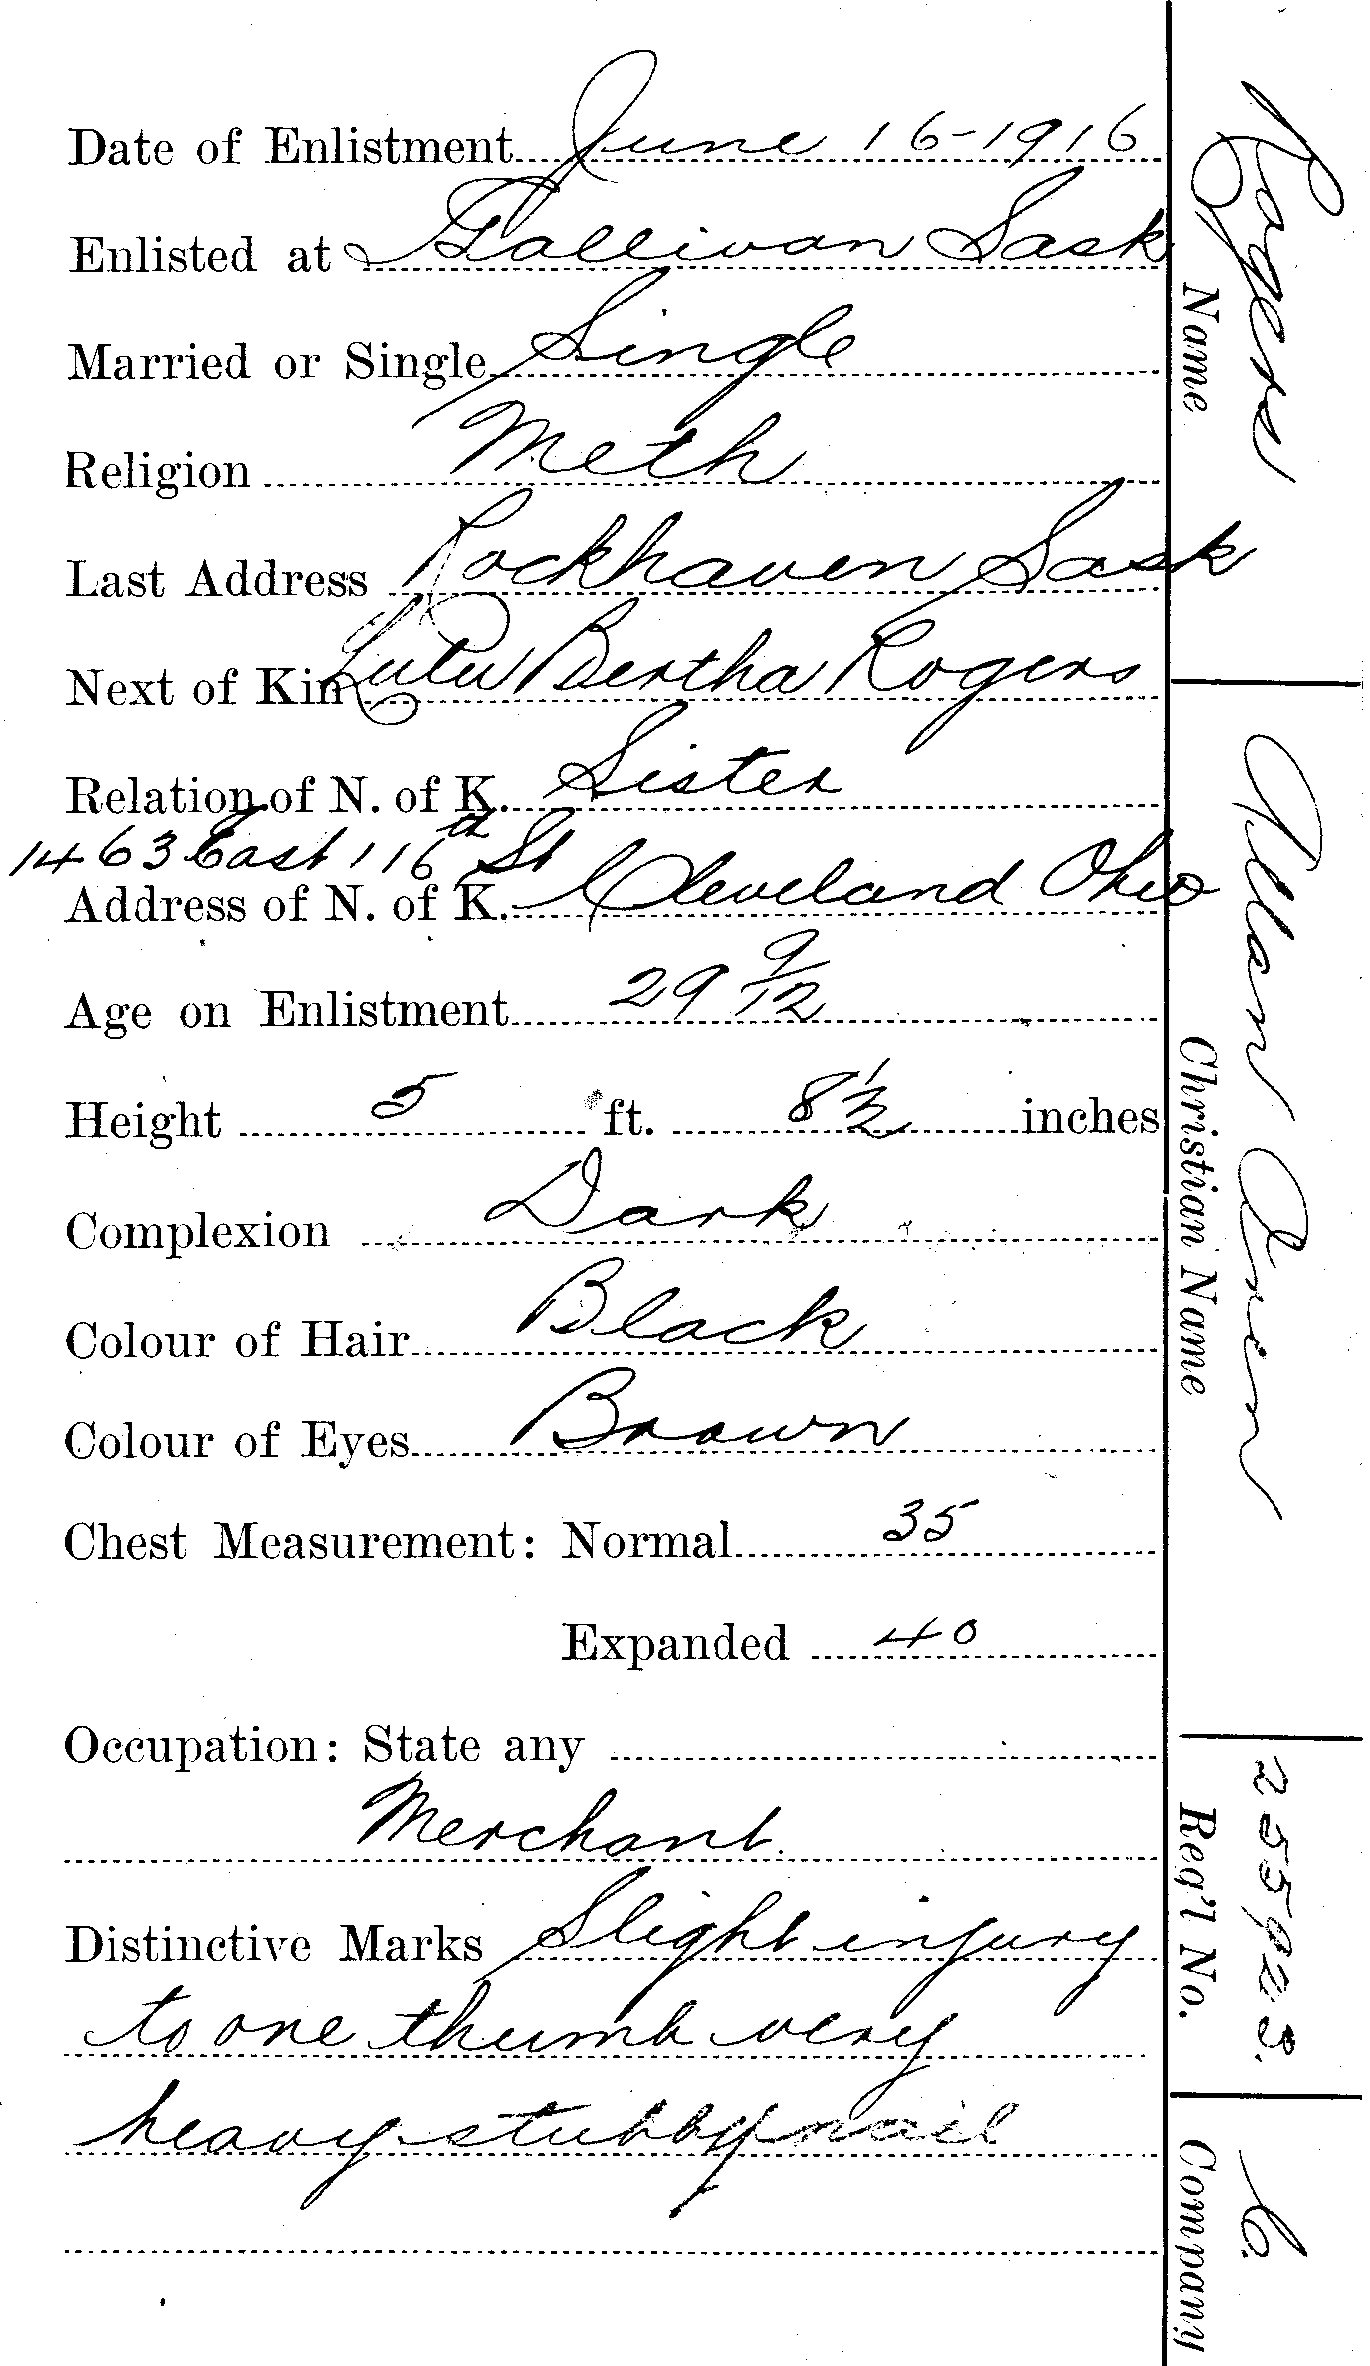 Date of Enlistment June 16-1916
Enlisted at Gallivan Sask
Married or Single Single
Religion Meth
Last Address Rockhaven Sask
Next of Kin Lulu Bertha Rogers
Relation of N. of K. Sister
1463 East 116th St
Address of N. of K. Cleveland Ohio
Age on Enlistment 29 9/12
Height 5 ft. 8 1/2 inches
Complexion Dark
Colour of Hair Black
Colour of Eyes Brown
Chest Measurement: Normal 35
Expanded 40
Occupation: State any
Merchant
Distinctive Marks Slight injury
to one thumb very
heavy stubby nail
Rogers
Name
Allan Orien
Christian Name
255923.
Reg'l No.
Company